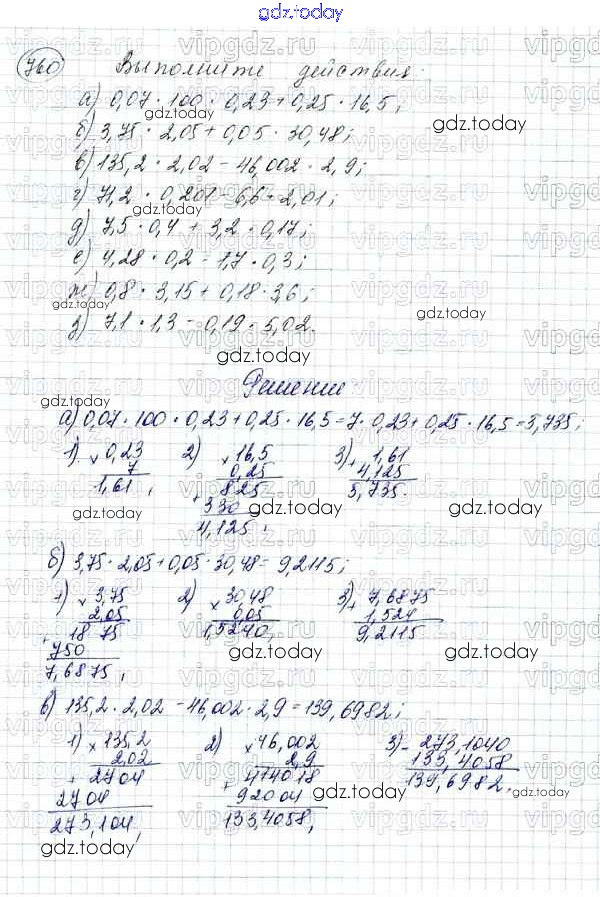 gdz.today
760 Выполните действия:
а) 0,07 · 100 · 0,23 + 0,25 · 16,5;
б) 3,75 · 2,05 + 0,05 · 30,48;
в) 135,2 · 2,02 - 46,002 · 2,9;
г) 71,2 · 0,201 - 6,6 · 2,01;
д) 7,5 · 0,4 + 3,2 · 0,17;
е) 4,28 · 0,2 - 1,7 · 0,3;
ж) 0,8 · 3,15 + 0,18 · 3,6;
з) 7,1 · 1,3 - 0,19 · 5,02.
gdz.today
Решение
а) 0,07 · 100 · 0,23 + 0,25 · 16,5 = 7 · 0,23 + 0,25 · 16,5 = 5,735;
1) × 0,23 2) × 16,5 3) + 1,61
7 0,25 4,125
1,61, 825 5,735.
+ 330
4,125,
gdz.today gdz.today gdz.today
б) 3,75 · 2,05 + 0,05 · 30,48 = 9,2115;
1) × 3,75 2) × 30,48 3) + 7,6875
2,05 0,05 1,524
+ 1875 1,5240, 9,2115
750
7,6875,
gdz.today gdz.today
в) 135,2 · 2,02 - 46,002 · 2,9 = 139,6982;
1) × 135,2 2) × 46,002 3) - 273,1040
2,02 2,9 133,4058
+ 2704 + 414018 139,6982.
2704 92004
273,104, 133,4058,
gdz.today gdz.today gdz.today